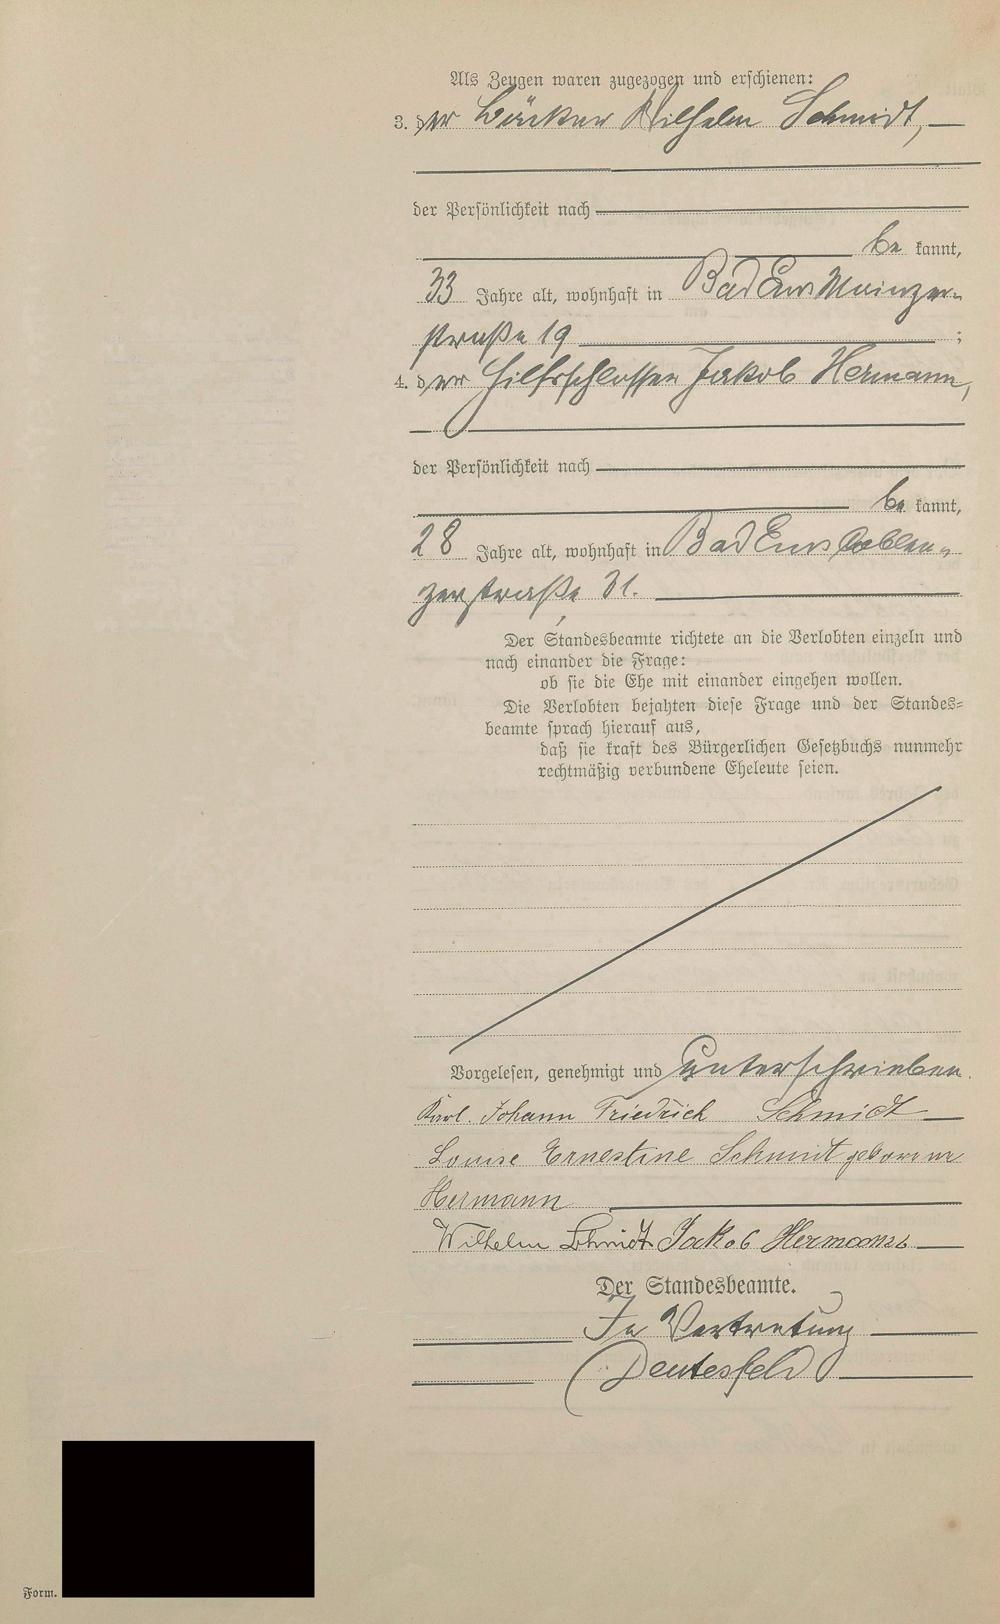 Als Zeugen waren zugezogen und erschienen:
3. der Bäcker Wilhelm Schmidt,
der Persönlichkeit nach
be kannt,
33 Jahre alt, wohnhaft in Bad Ems Mainzer-
straße 19 ;
4. der Hilfsschlosser Jakob Hermann,
der Persönlichkeit nach
be kannt,
28 Jahre alt, wohnhaft in Bad Ems Coblen-
zerstraße 31.
Der Standesbeamte richtete an die Verlobten einzeln und
nach einander die Frage:
ob sie die Ehe mit einander eingehen wollen.
Die Verlobten bejahten diese Frage und der Standes-
beamte sprach hierauf aus,
daß sie kraft des Bürgerlichen Gesetzbuchs nunmehr
rechtmäßig verbundene Eheleute seien.
Vorgelesen, genehmigt und unterschrieben.
Karl Johann Friedrich Schmidt
Louise Ernestine Schmidt geborene
Hermann
Wilhelm Schmidt Jakob Hermann
Der Standesbeamte.
In Vertretung
Deutesfeld
Form.